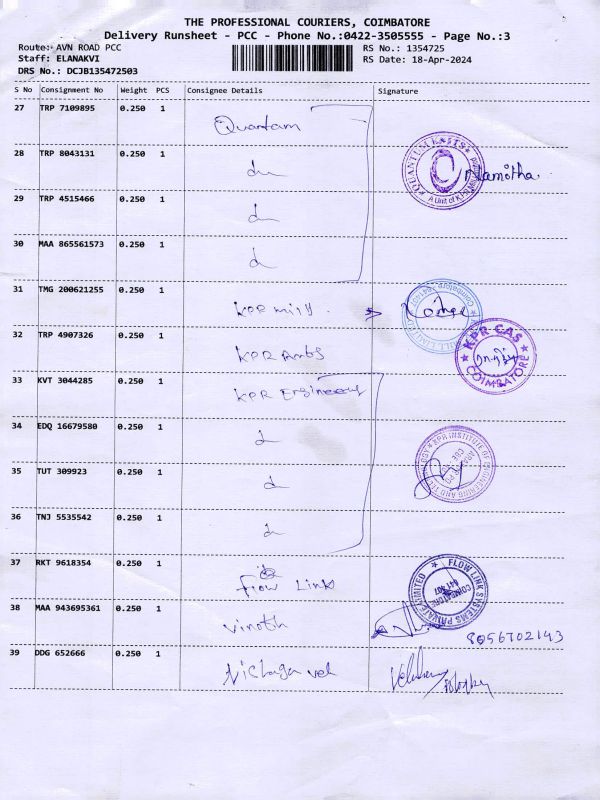 THE PROFESSIONAL COURIERS, COIMBATORE
Delivery Runsheet - PCC - Phone No.:0422-3505555 - Page No.:3
Route: AVN ROAD PCC
RS No.: 1354725
Staff: ELANAKVI
RS Date: 18-Apr-2024
DRS No.: DCJB135472503
S No Consignment No Weight PCS Consignee Details Signature
27 TRP 7109895 0.250 1 Quantam
28 TRP 8043131 0.250 1 du Namitha
29 TRP 4515466 0.250 1 du
30 MAA 865561573 0.250 1 d
31 TMG 200621255 0.250 1 KPR mill
32 TRP 4907326 0.250 1 KPR Arts
KPR CAS COIMBATORE
33 KVT 3044285 0.250 1 KPR Engineeng
34 EDQ 16679580 0.250 1
KPR INSTITUTE OF ENGINEERING AND TECHNOLOGY
35 TUT 309923 0.250 1 d
36 TNJ 5535542 0.250 1
37 RKT 9618354 0.250 1 flow Link
FLOW LINK SYSTEMS PRIVATE LIMITED
COIMBATORE
641 407
38 MAA 943695361 0.250 1 vinoth
8056702143
39 DDG 652666 0.250 1